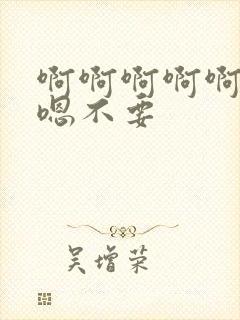 啊啊啊啊啊
嗯不要
吴增荣